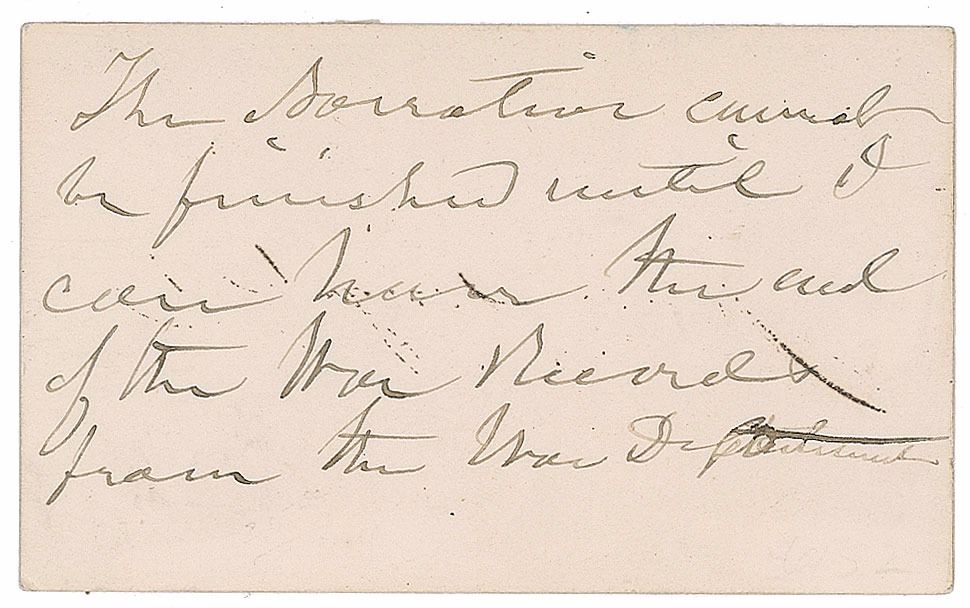 The Narrative cannot
be finished until I
can have the aid
of the War Records
from the War Department